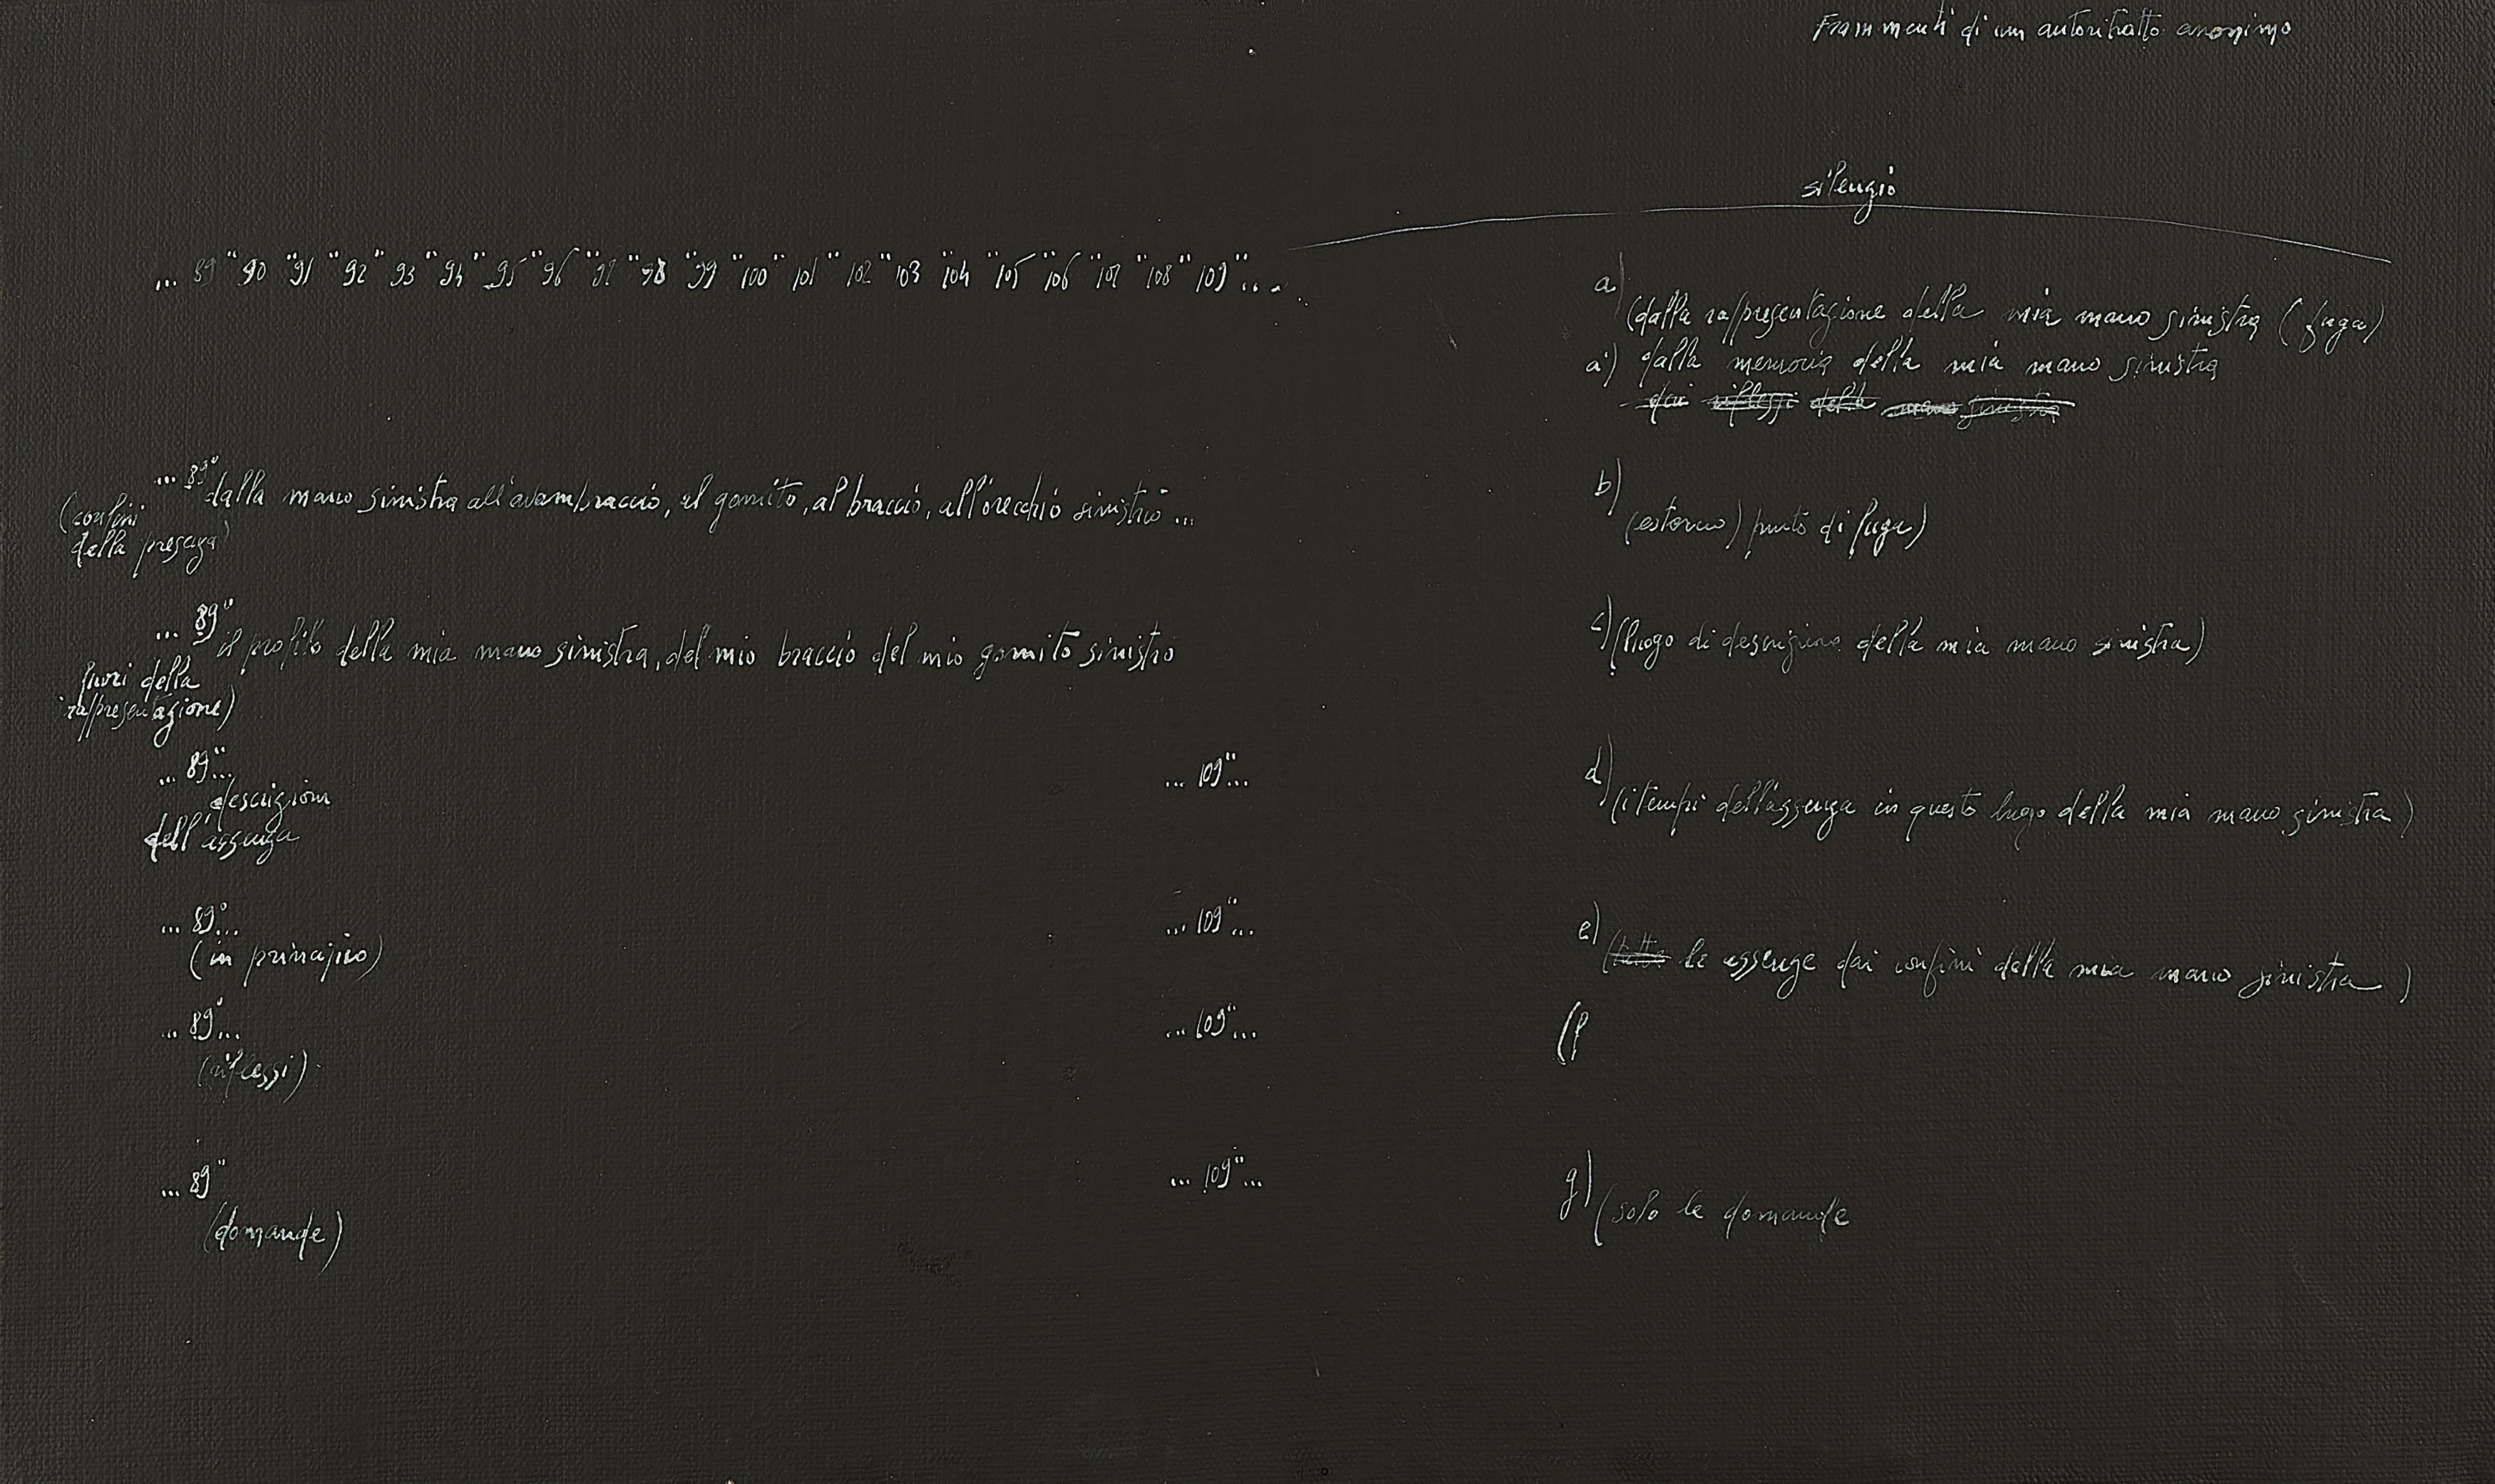 Frammenti di un autoritratto anonimo
silenzio
... 89" 90" 91" 92" 93" 94" 95" 96" 97" 98" 99" 100" 101" 102" 103" 104" 105" 106" 107" 108" 109"...
a) (dalla rappresentazione della mia mano sinistra (fuga)
a') dalla memoria della mia mano sinistra
dai riflessi della mano sinistra
... 89" dalla mano sinistra all'avambraccio, al gomito, al braccio, all'orecchio sinistro...
(confini
della presenza)
b) (esterno) punto di fuga)
... 89" il profilo della mia mano sinistra, del mio braccio del mio gomito sinistro
fuori della
rappresentazione)
c) (luogo di descrizione della mia mano sinistra)
... 89"... ... 109"...
descrizioni
dell'assenza
d) (i tempi dell'assenza in questo luogo della mia mano sinistra)
... 89"... ... 109"...
(in principio)
e) (tutte le assenze dai confini della mia mano sinistra)
... 89"... ... 109"...
(riflessi)
(f
... 89" ... 109"...
(domande)
g) (solo le domande